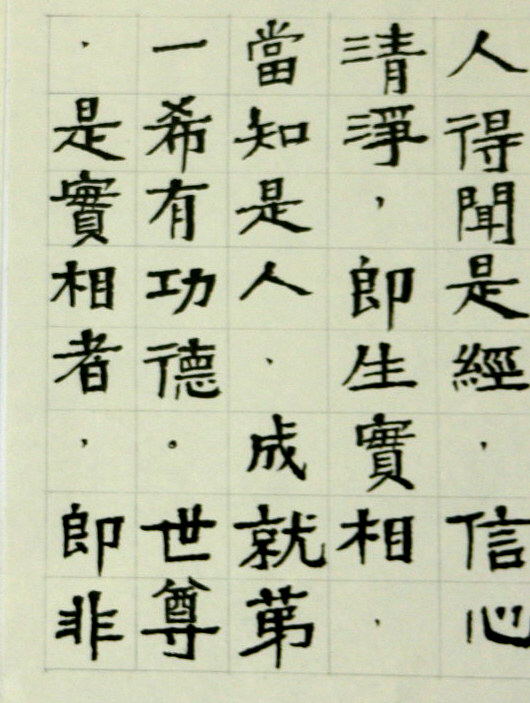 人得聞是經，信心
清淨，即生實相，
當知是人，成就第
一希有功德。世尊
，是實相者，即非